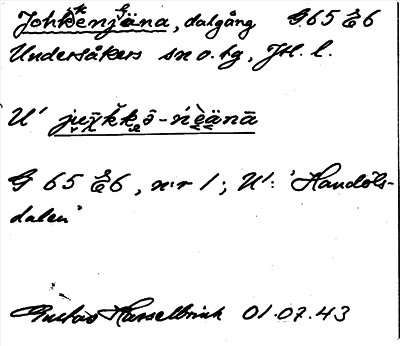 Johkenjäna, dalgång G.65 Æ6
Undersåkers sn o. tg, JH. l.
U'
G 65 Æ6, nr 1; U': 'Handöls-
dalen'
Gustav Hasselbrink 01.07.43